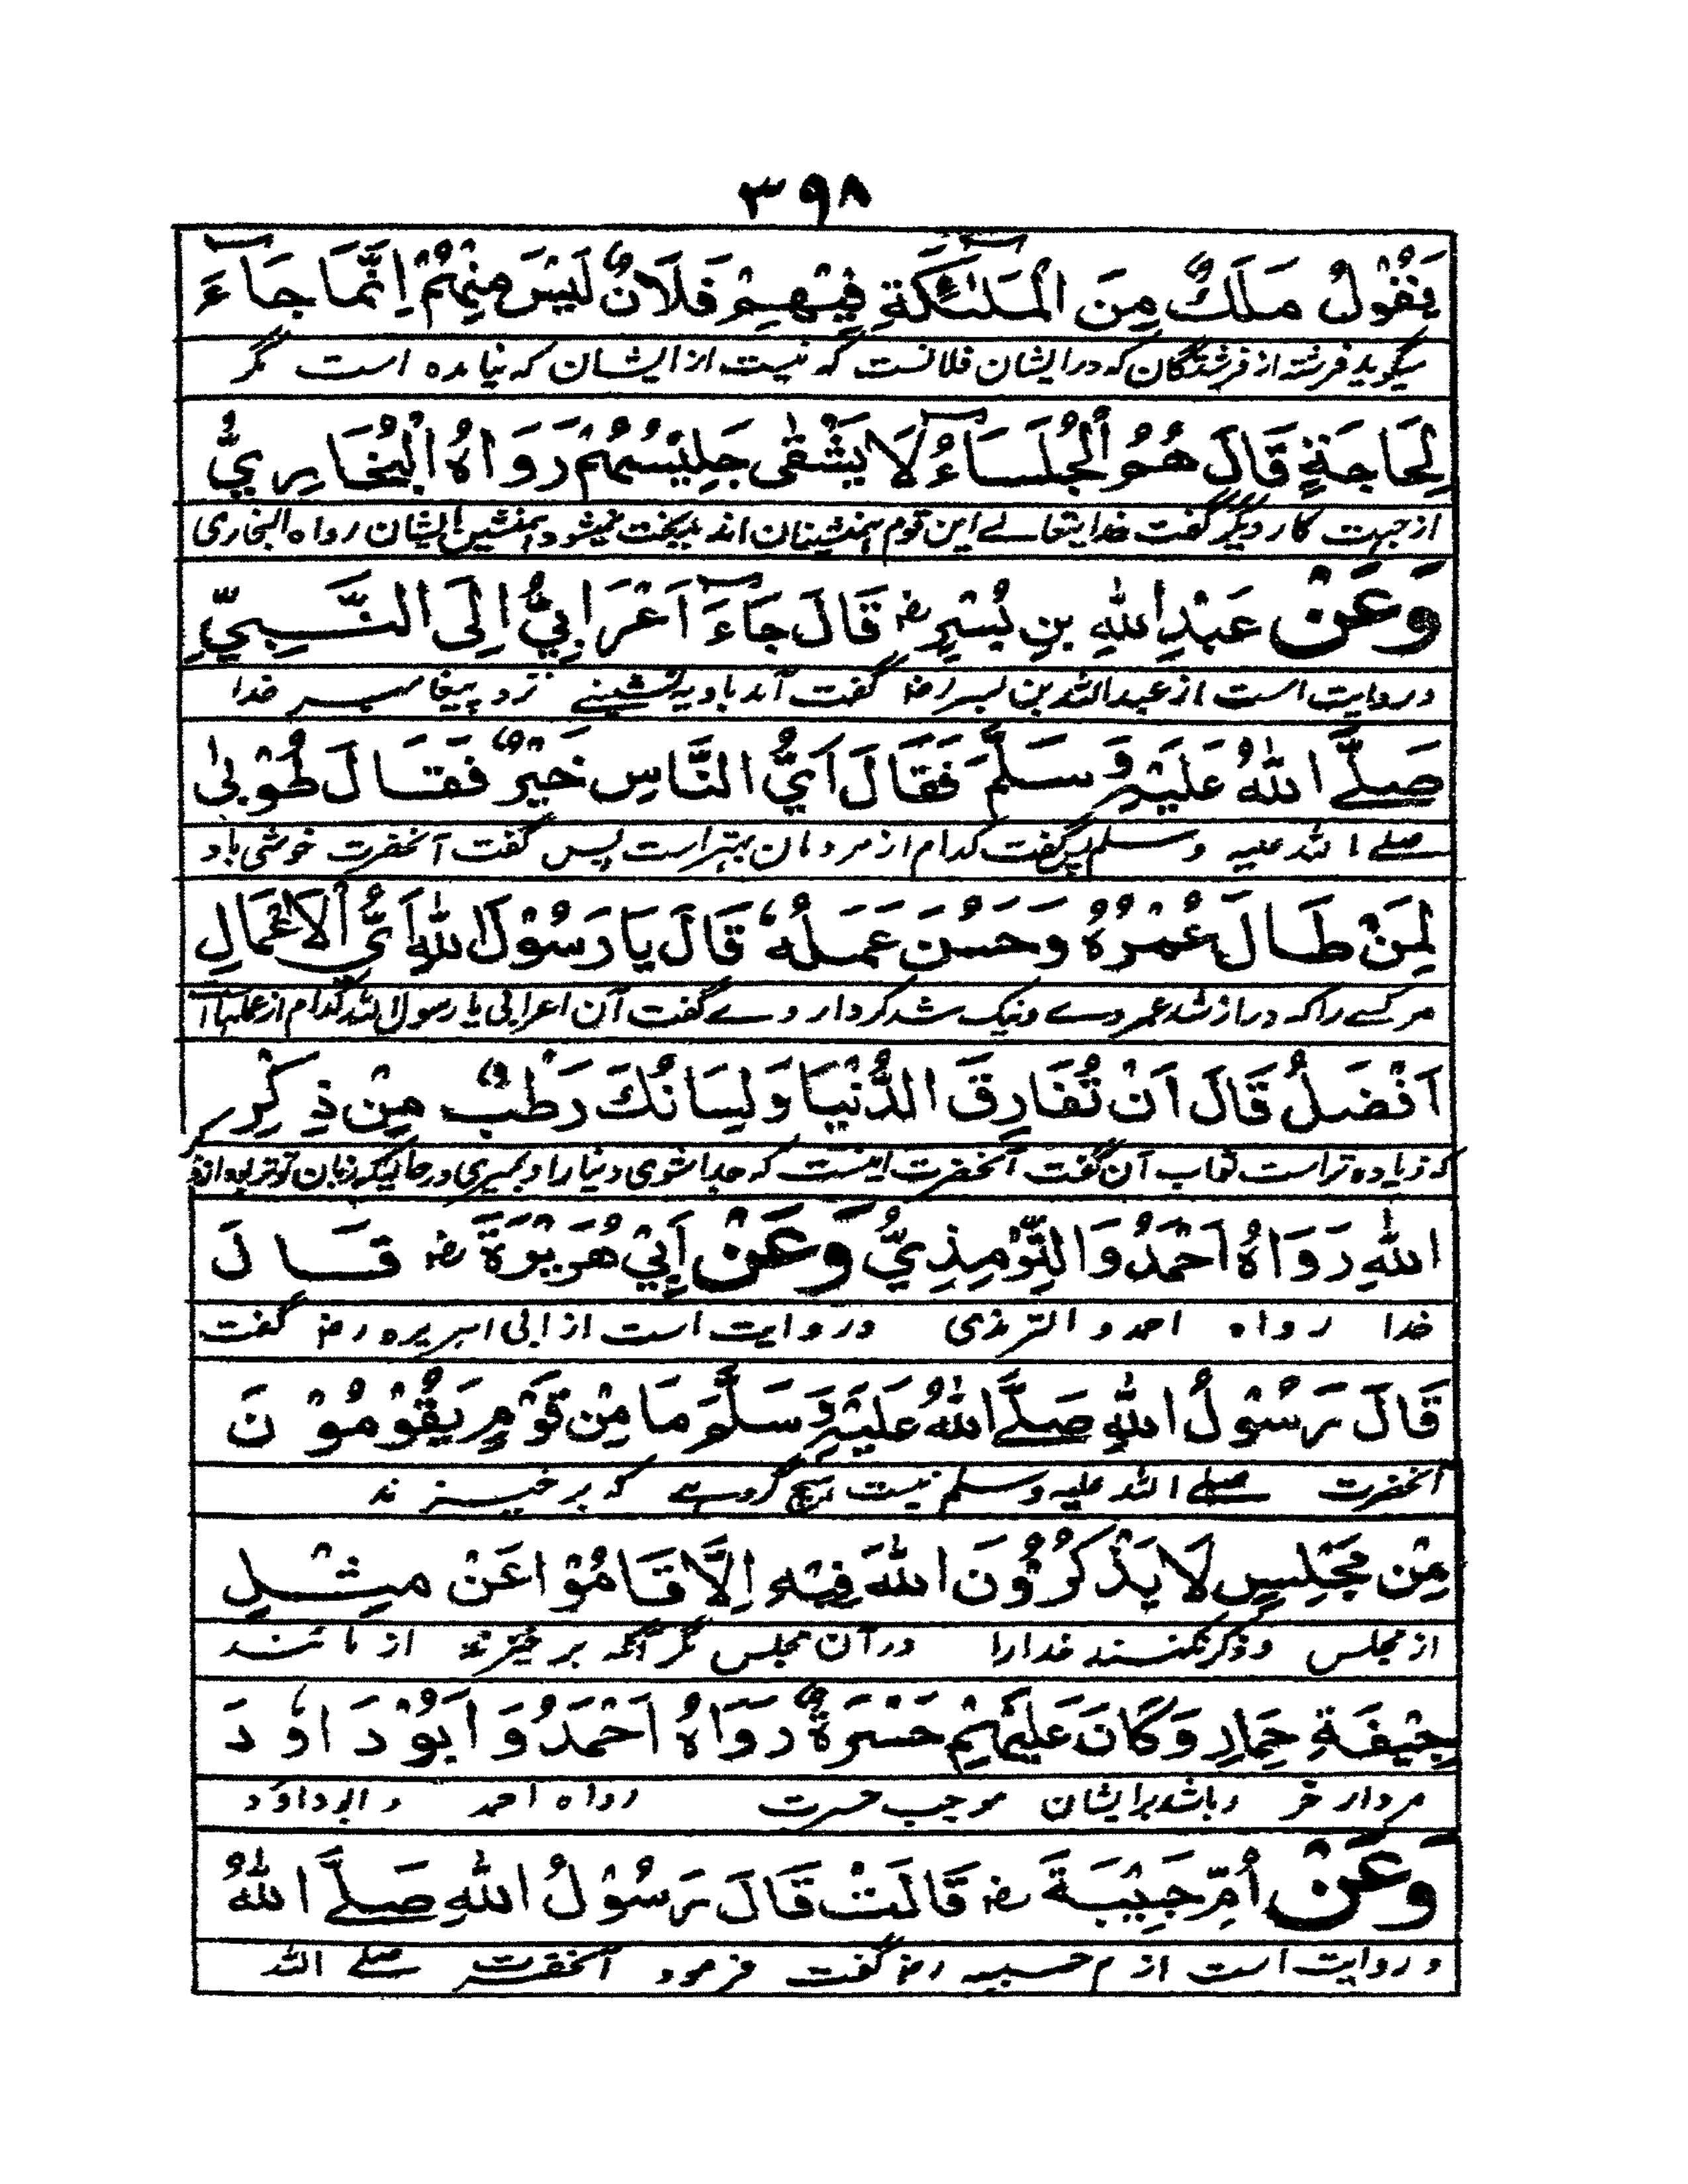 ۳۹۸
يَقُوْلُ مَلَكٌ مِنَ الْمَلٰئِكَةِ فِيْهِمْ فَلَانٌ لَيْسَ مِنْهُمْ اِنَّمَا جَاءَ
میگوید فرشته از فرشتگان که در ایشان فلانست که نیست از ایشان که نیامده است مگر
لِحَاجَةٍ قَالَ هُمُ الْجُلَسَاءُ لَا يَشْقٰى جَلِيْسُهُمْ رَوَاهُ الْبُخَارِيُّ
از جهت کار دیگر گفت خدایتعالے این قوم همنشینان اند بدبخت نمیشود همنشین ایشان رواه البخاری
وَعَنْ عَبْدِ اللهِ بنِ بُسْرٍ رض قَالَ جَاءَ اَعْرَابِيٌّ اِلَى النَّبِيِّ
و روایت است از عبد الله بن بسر رض گفت آمد بادیه نشینے نزد پیغامبر خدا
صَلَّے اللهُ عَلَيْهِ وَسَلَّمَ فَقَالَ اَيُّ النَّاسِ خَيْرٌ فَقَالَ طُوْبٰى
صلے الله علیه وسلم پس گفت کدام از مردمان بهتر است پس گفت آنحضرت خوشی باد
لِمَنْ طَالَ عُمْرُهُ وَحَسُنَ عَمَلُهُ قَالَ يَا رَسُوْلَ اللهِ اَيُّ الْاَعْمَالِ
مر کسے را که دراز شد عمر وے و نیک شد کردار وے گفت آن اعرابی یا رسول الله کدام از عملها
اَفْضَلُ قَالَ اَنْ تُفَارِقَ الدُّنْيَا وَلِسَانُكَ رَطْبٌ مِنْ ذِكْرِ
که زیاده تر است ثواب آن گفت آنحضرت اینست که جدا شوی دنیا را و بمیری در حالیکه زبان تو تر بود از ذکر
اللهِ رَوَاهُ اَحْمَدُ وَالتِّرْمِذِيُّ وَعَنْ اَبِيْ هُرَيْرَةَ رض قَالَ
خدا رواه احمد و الترمذی و روایت است از ابی هریره رض گفت
قَالَ رَسُوْلُ اللهِ صَلَّے اللهُ عَلَيْهِ وَسَلَّمَ مَا مِنْ قَوْمٍ يَقُوْمُوْنَ
آنحضرت صلے الله علیه وسلم نیست هیچ گروهے که بر خیزند
مِنْ مَجْلِسٍ لَا يَذْكُرُوْنَ اللهَ فِيْهِ اِلَّا قَامُوْا عَنْ مِثْلِ
از مجلس و ذکر نکنند خدا را در آن مجلس مگر آنکه بر خیزند از مانند
جِيْفَةِ حِمَارٍ وَكَانَ عَلَيْهِمْ حَسْرَةٌ رَوَاهُ اَحْمَدُ وَاَبُوْ دَاوٗدَ
مردار خر و باشد بر ایشان موجب حسرت رواه احمد و ابو داود
وَعَنْ اُمِّ حَبِيْبَةَ رض قَالَتْ قَالَ رَسُوْلُ اللهِ صَلَّے اللهُ
و روایت است از ام حبیبه رض گفت فرمود آنحضرت صلے الله